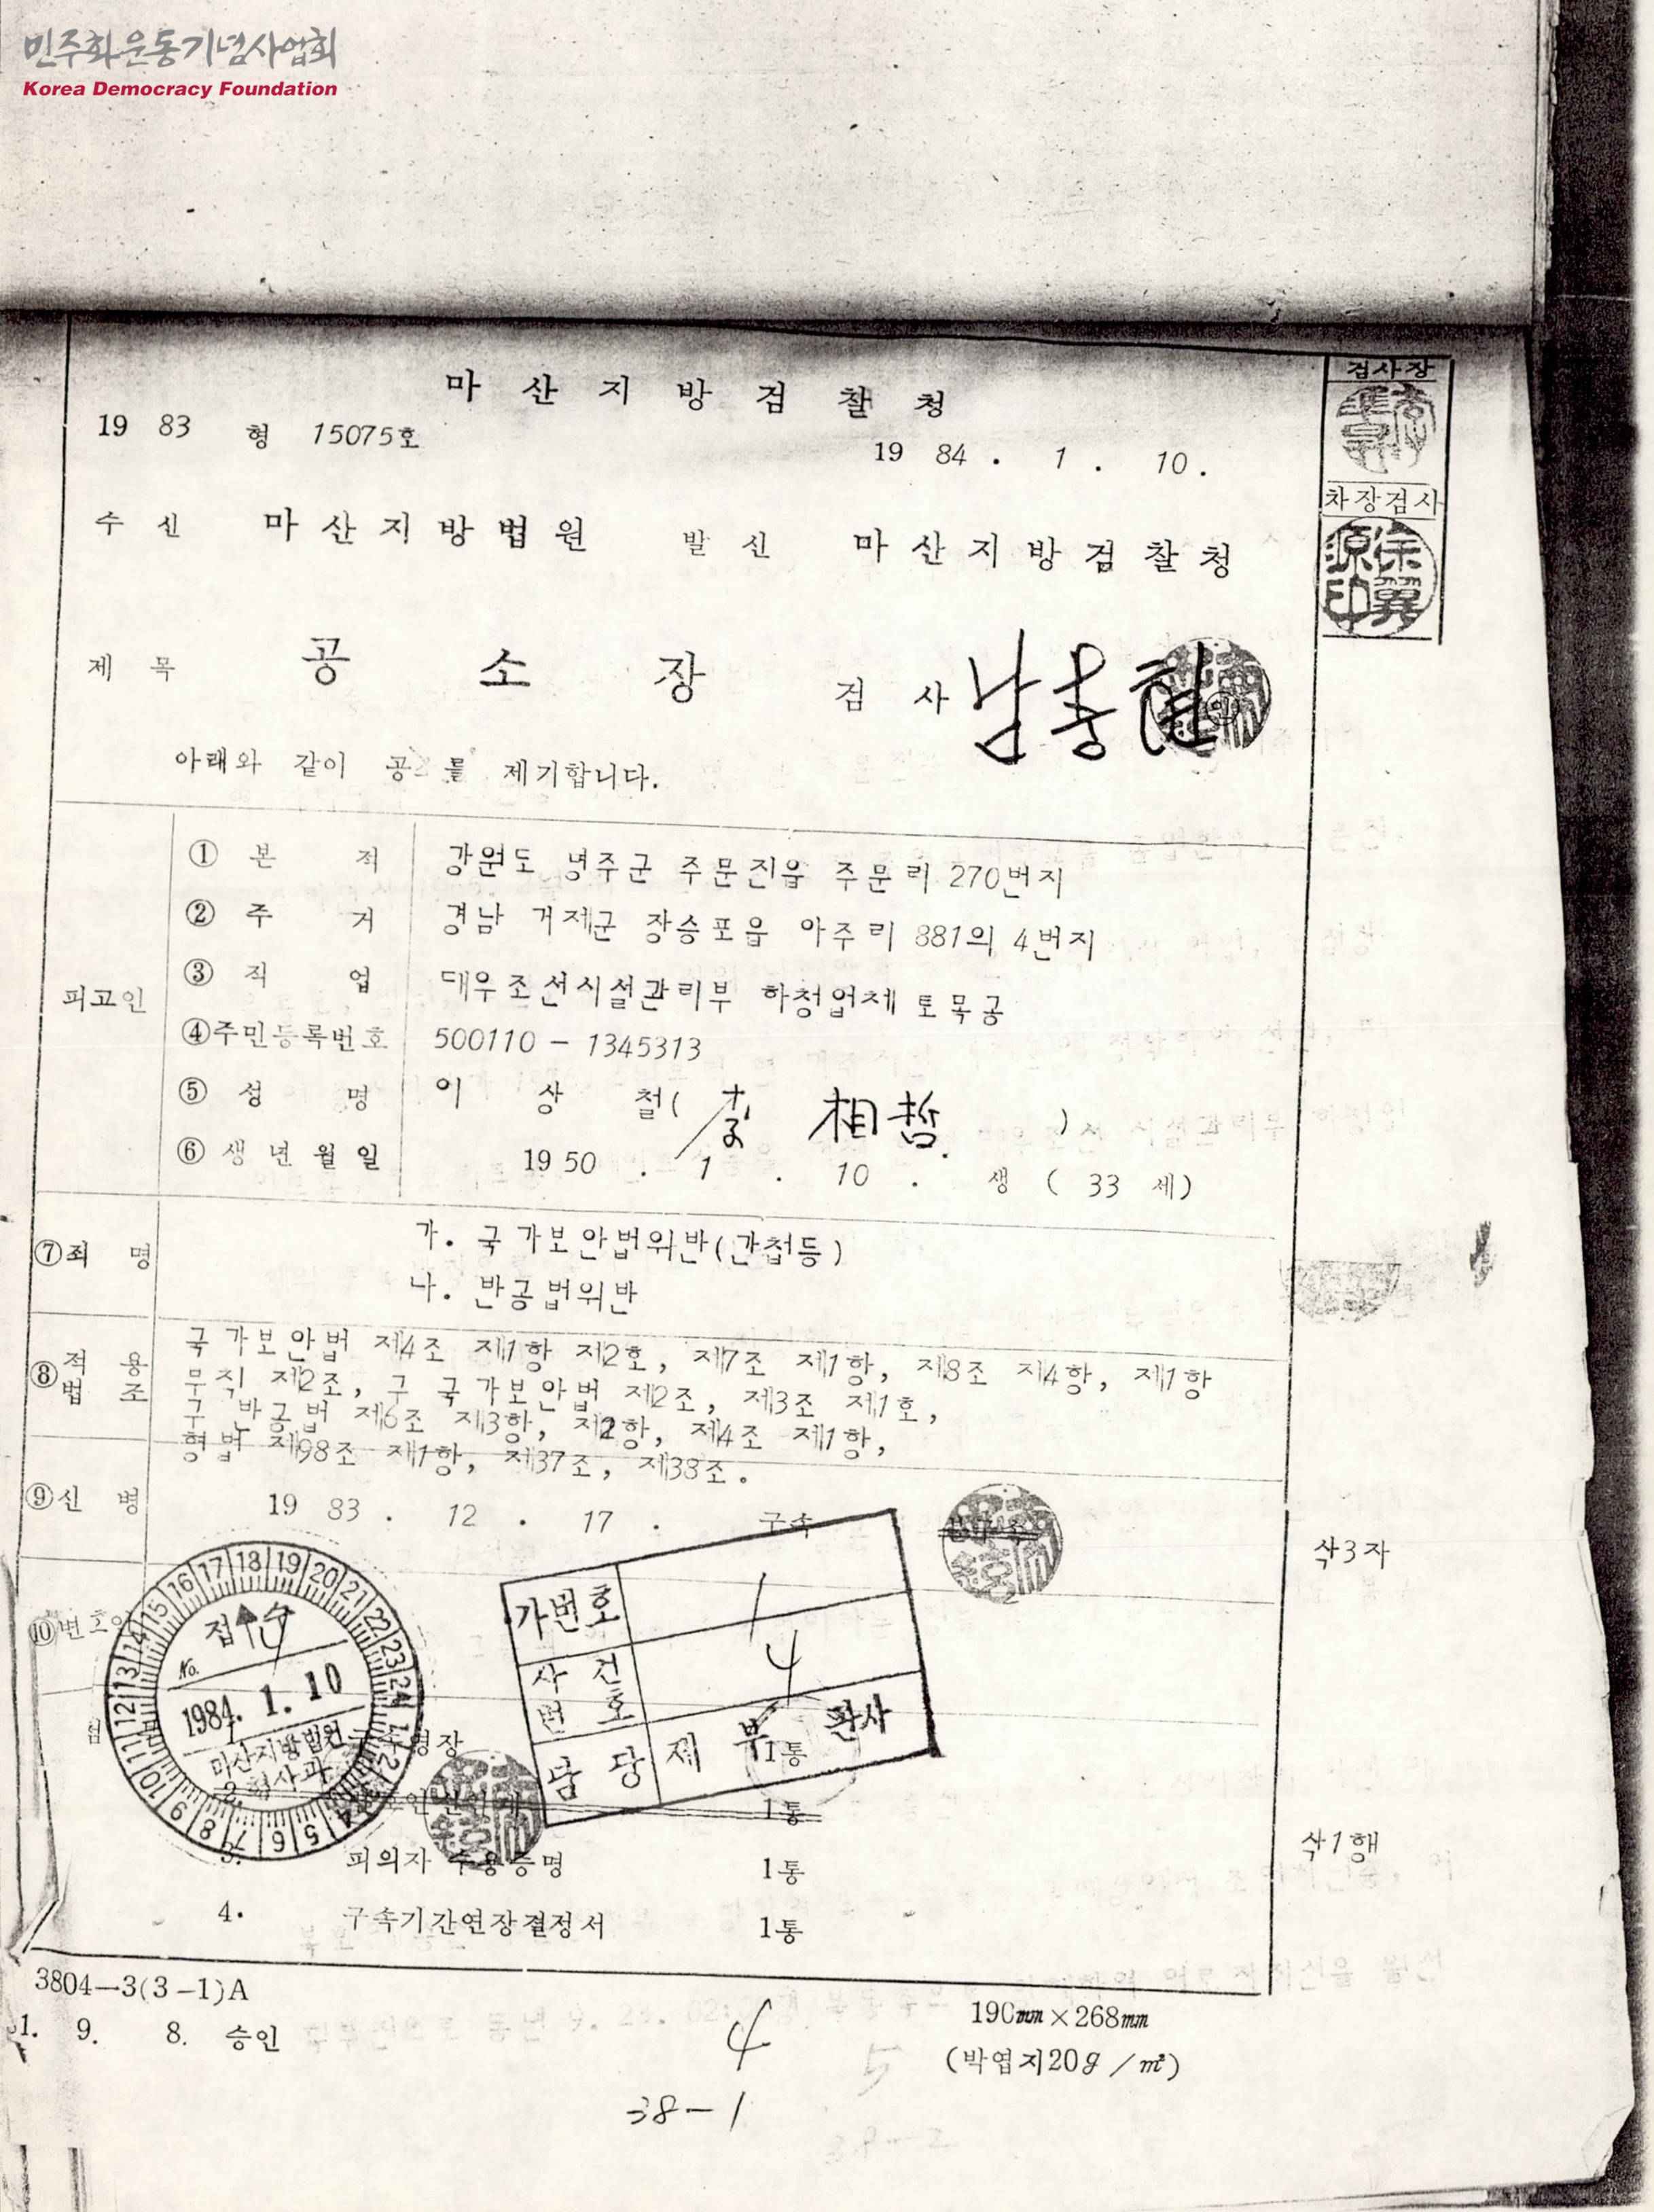 민주화운동기념사업회
Korea Democracy Foundation
마 산 지 방 검 찰 청
검사장
19 83 형 15075호
19 84 . 1 . 10 .
차장검사
수 신 마 산 지 방 법 원 발 신 마 산 지 방 검 찰 청
徐翼源印
제 목 공 소 장 검 사
아래와 같이 공소를 제기합니다.
피고인
① 본 적 강원도 명주군 주문진읍 주문리 270번지
② 주 거 경남 거제군 장승포읍 아주리 881의 4번지
③ 직 업 대우조선시설관리부 하청업체 토목공
④주민등록번호 500110 - 1345313
⑤ 성 명 이 상 철( 李 相哲 )
⑥ 생 년 월 일 19 50 . 1 . 10 . 생 ( 33 세)
⑦죄 명 가. 국가보안법위반(간첩등)
나. 반공법위반
⑧적 용 법 조 국가보안법 제4조 제1항 제2호, 제7조 제1항, 제8조 제4항, 제1항
부칙 제2조, 구 국가보안법 제2조, 제3조 제1호,
구 반공법 제6조 제3항, 제2항, 제4조 제1항,
형법 제98조 제1항, 제37조, 제38조.
⑨신 병 19 83 . 12 . 17 . 구속
삭3자
⑩변호인
17 18 19 20 21 22 23 24 1 2 3 4 5 6 7 8 9 10 11 12 13 14 15 16
접 수
No.
1984. 1. 10
마산지방법원
형사과
가번호 1
사 건 번 호 4
담 당 제 부 판사
영장 1통
2. 1통
3. 피의자 수용증명 1통
삭1행
4. 구속기간연장결정서 1통
3804-3(3-1)A
1. 9. 8. 승인
190㎜×268㎜
(박엽지20g/㎡)
4
5
38-1